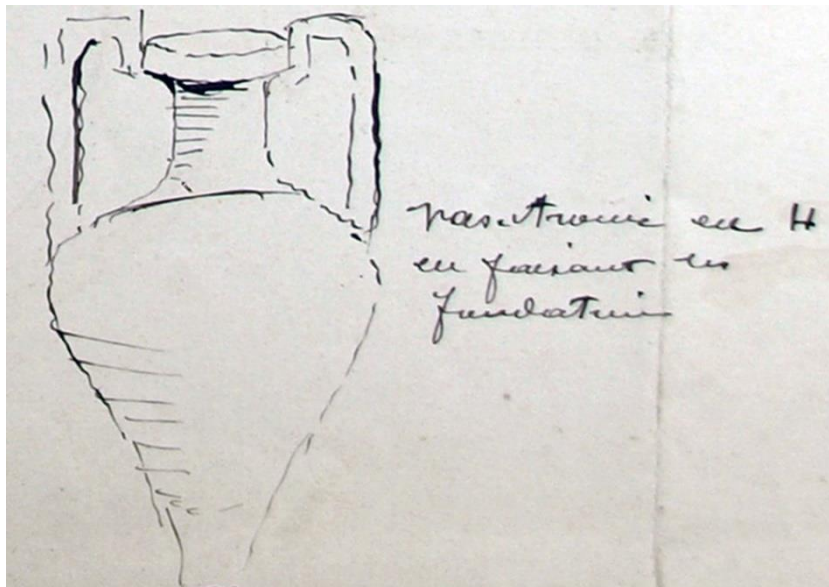 vase trouvé en H
en faisant les
fondations